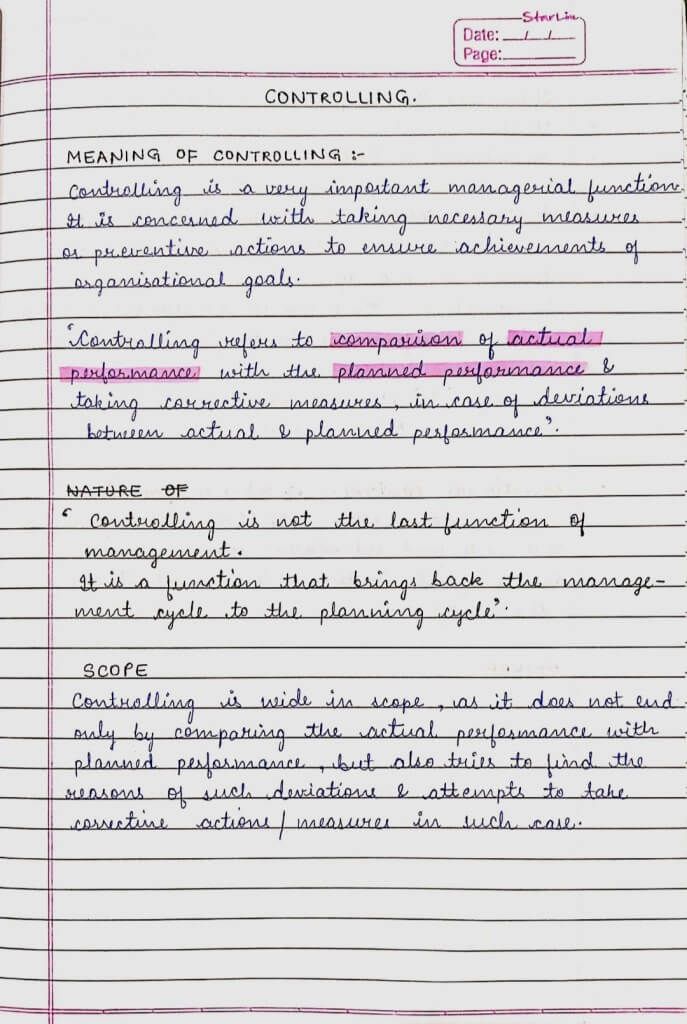 StarLine
Date: __/__/__
Page:______
CONTROLLING.
MEANING OF CONTROLLING :-
Controlling is a very important managerial function.
It is concerned with taking necessary measures
or preventive actions to ensure achievements of
organisational goals.
'Controlling refers to comparison of actual
performance with the planned performance &
taking corrective measures, in case of deviations
between actual & planned performance'.
NATURE OF
' Controlling is not the last function of
management.
It is a function that brings back the manage-
ment cycle to the planning cycle'.
SCOPE
Controlling is wide in scope, as it does not end
only by comparing the actual performance with
planned performance, but also tries to find the
reasons of such deviations & attempts to take
corrective actions/measures in such case.